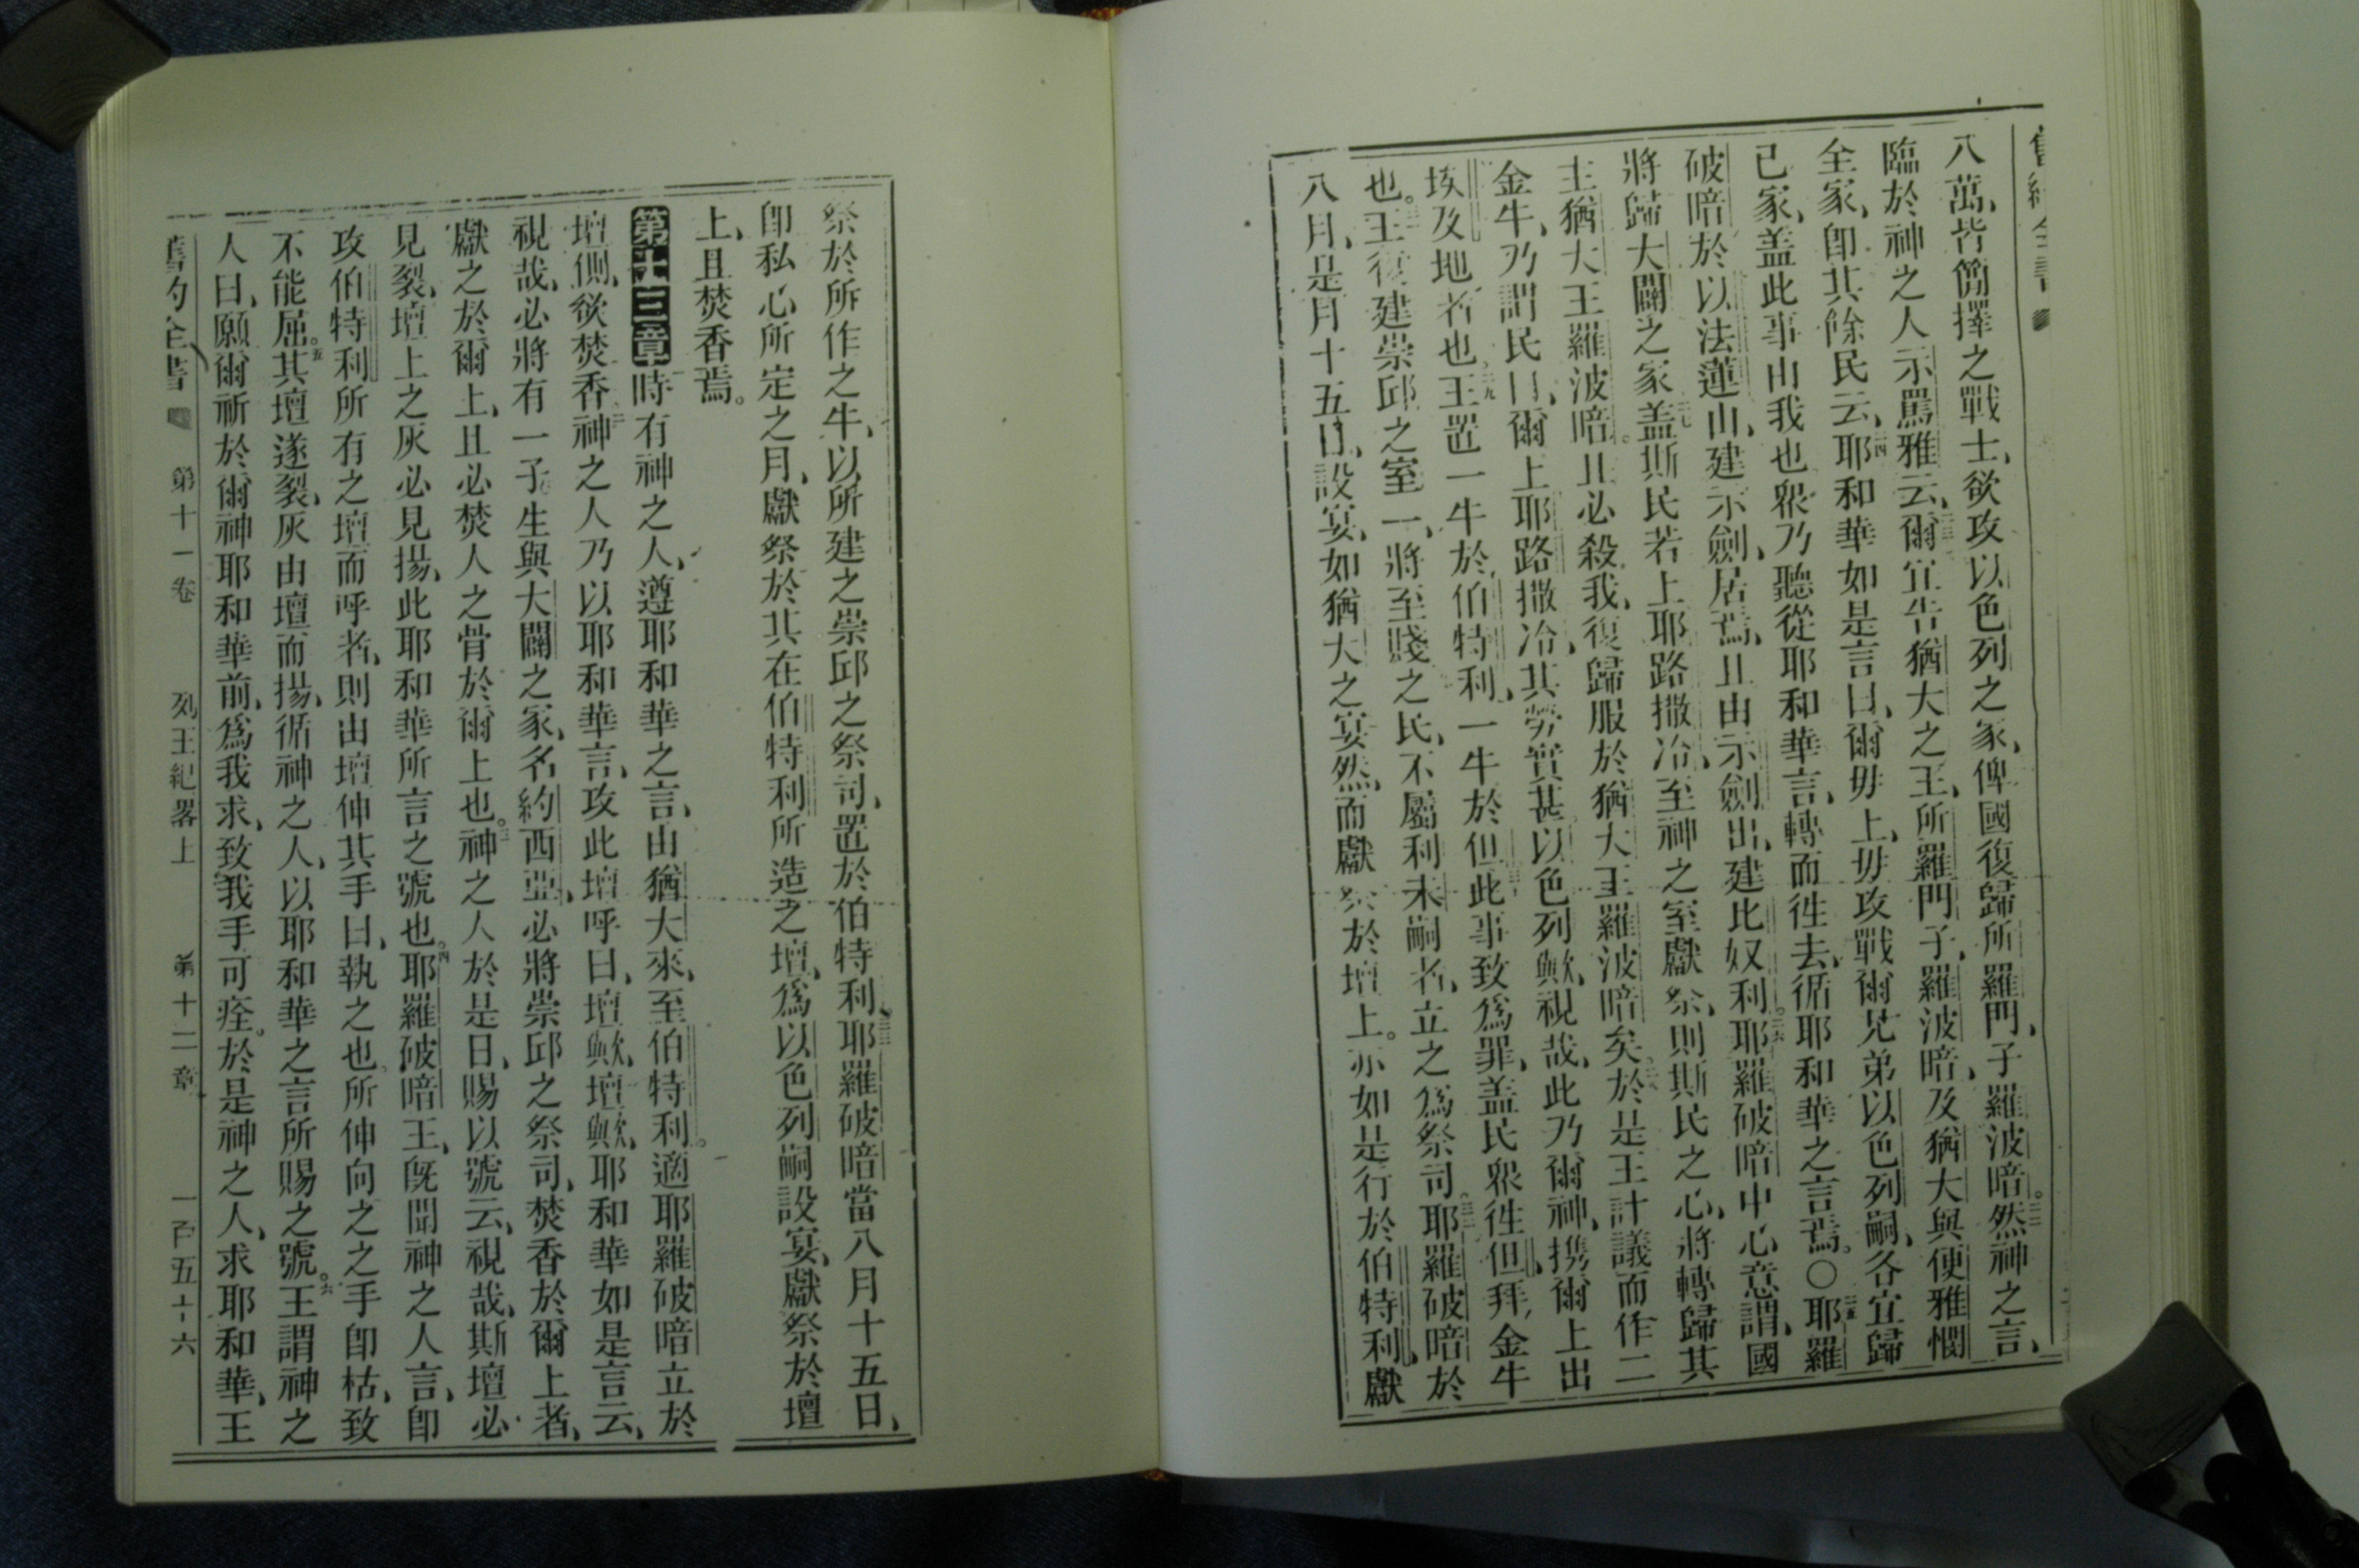 舊約全書
八萬、皆簡擇之戰士、欲攻以色列之家、俾國復歸所羅門、子羅波暗。三二然神之言、
臨於神之人示罵雅云、三三爾宜告猶大之王、所羅門子、羅波暗、及猶大與便雅憫
全家、卽其餘民云、二四耶和華如是言曰、爾毋上、毋攻戰爾兄弟以色列嗣、各宜歸
己家、盖此事由我也衆乃聽從耶和華言、轉而徃去、循耶和華之言焉。〇二五耶羅
破暗於以法蓮山、建示劍、居焉、且由示劍出、建比奴利。二六耶羅破暗中心意謂、國
將歸大闢之家二七盖斯民若上耶路撒冷、至神之室獻祭、則斯民之心、將轉歸其
主猶大王羅波暗。且必殺我、復歸服於猶大王羅波暗矣。二八於是王計議而作二
金牛、乃謂民曰、爾上耶路撒冷、其勞實甚。以色列歟、視哉、此乃爾神、携爾上出
埃及地者也、二九王置一牛於伯特利、一牛於但三十此事致爲罪、盖民衆徃但、拜金牛
也。三一王復建崇邱之室一、將至賤之民、不屬利未嗣者、立之爲祭司。三二耶羅破暗於
八月、是月十五日、設宴、如猶大之宴然、而獻祭於壇上。亦如是行於伯特利、獻
祭於所作之牛、以所建之崇邱之祭司、置於伯特利。三三耶羅破暗當八月十五日、
卽私心所定之月、獻祭於其在伯特利所造之壇、爲以色列嗣設宴、獻祭於壇
上、且焚香焉。
第十三章一時有神之人、遵耶和華之言、由猶大來、至伯特利。適耶羅破暗立於
壇側、欲焚香、二神之人乃以耶和華言、攻此壇呼曰、壇歟、壇歟、耶和華如是言云、
視哉、必將有一子、生與大闢之家、名約西亞、必將崇邱之祭司、焚香於爾上者、
獻之於爾上、且必焚人之骨於爾上也。三神之人於是日、賜以號云、視哉、斯壇必
見裂、壇上之灰必見揚、此耶和華所言之號也。四耶羅破暗王、旣聞神之人言、卽
攻伯特利所有之壇而呼者、則由壇伸其手曰、執之也。所伸向之之手卽枯、致
不能屈。五其壇遂裂、灰由壇而揚、循神之人、以耶和華之言所賜之號。六王謂神之
人曰、願爾祈於爾神耶和華前、爲我求、致我手可痊。於是神之人、求耶和華、王
舊約全書 第十一卷 列王紀畧上 第十二章 一百五十六